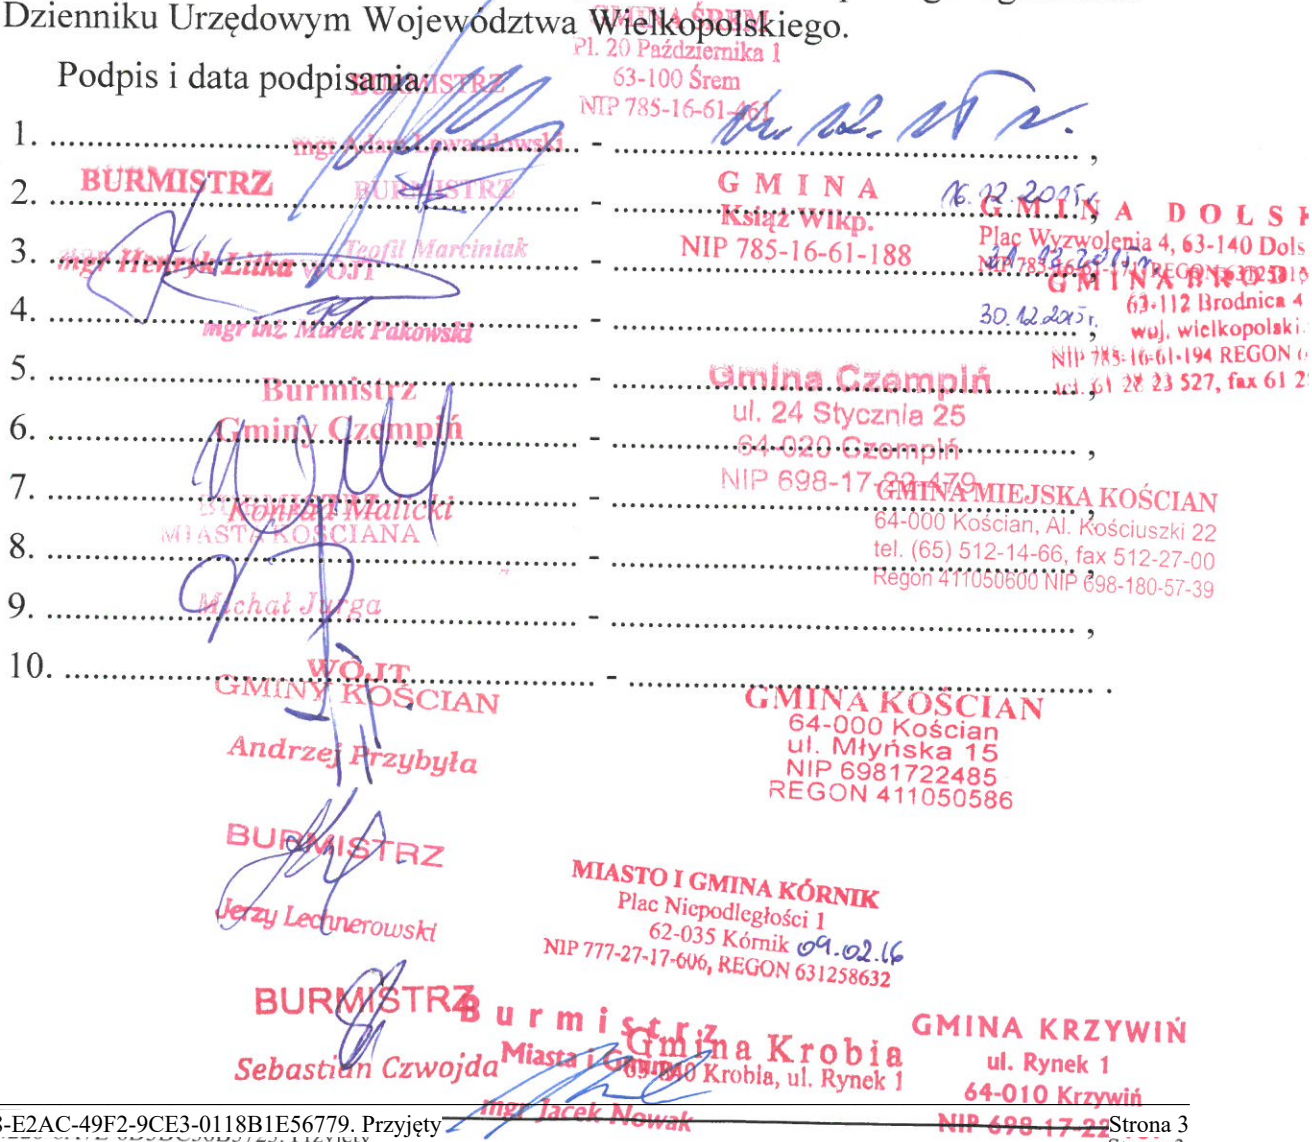 Dzienniku Urzędowym Województwa Wielkopolskiego.
GMINA ŚREM
Pl. 20 Października 1
63-100 Śrem
NIP 785-16-61-461
Podpis i data podpisania:
BURMISTRZ
mgr Adam Lewandowski
1. - ,
BURMISTRZ
mgr Henryk Litka
BURMISTRZ
Teofil Marciniak
GMINA
Książ Wlkp.
NIP 785-16-61-188
2. - 16.12.2015r,
GMINA DOLSK
Plac Wyzwolenia 4, 63-140 Dols
3. - ,
WÓJT
mgr inż. Marek Pakowski
63-112 Brodnica 4
woj. wielkopolski
NIP 785-16-61-194 REGON
tel. 61 28 23 527, fax 61 2
4. - 30.12.2015r. ,
5. - ,
Burmistrz
Gminy Czempiń
Konrad Malicki
Gmina Czempiń
ul. 24 Stycznia 25
64-020 Czempiń
NIP 698-17-22-479
6. - ,
7. - ,
BURMISTRZ
MIASTA KOŚCIANA
Michał Jurga
GMINA MIEJSKA KOŚCIAN
64-000 Kościan, Al. Kościuszki 22
tel. (65) 512-14-66, fax 512-27-00
Regon 411050600 NIP 698-180-57-39
8. - ,
9. - ,
10. - .
WÓJT
GMINY KOŚCIAN
Andrzej Przybyła
GMINA KOŚCIAN
64-000 Kościan
ul. Młyńska 15
NIP 6981722485
REGON 411050586
BURMISTRZ
Jerzy Lechnerowski
MIASTO I GMINA KÓRNIK
Plac Niepodległości 1
62-035 Kórnik 09.02.16
NIP 777-27-17-606, REGON 631258632
BURMISTRZ
Sebastian Czwojda
Burmistrz
Miasta i Gminy
mgr Jacek Nowak
Gmina Krobia
63-840 Krobia, ul. Rynek 1
GMINA KRZYWIŃ
ul. Rynek 1
64-010 Krzywiń
NIP 698-17-22
-E2AC-49F2-9CE3-0118B1E56779. Przyjęty Strona 3